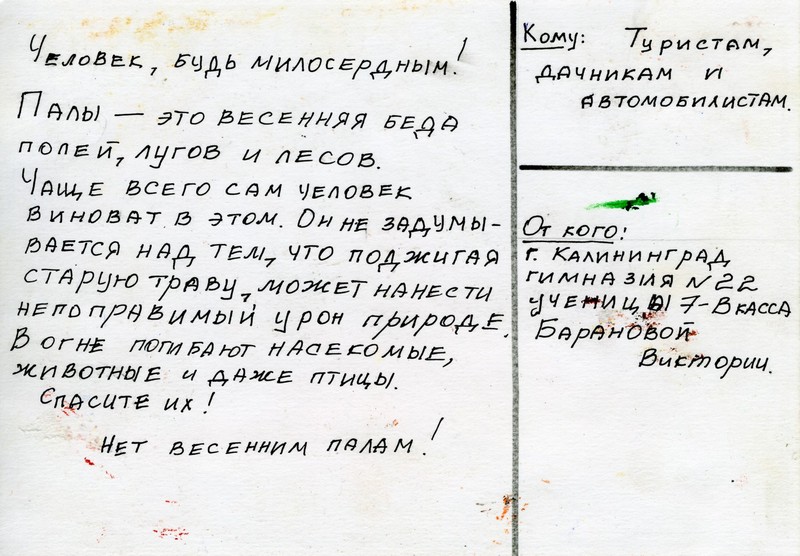 Человек, будь милосердным!
Палы — это весенняя беда
полей, лугов и лесов.
Чаще всего сам человек
виноват в этом. Он не задумы-
вается над тем, что поджигая
старую траву, может нанести
непоправимый урон природе.
В огне погибают насекомые,
животные и даже птицы.
Спасите их!
Нет весенним палам!
Кому: Туристам,
дачникам и
автомобилистам.
От кого:
г. Калининград,
гимназия N 22
ученицы 7-В касса
Барановой
Виктории.